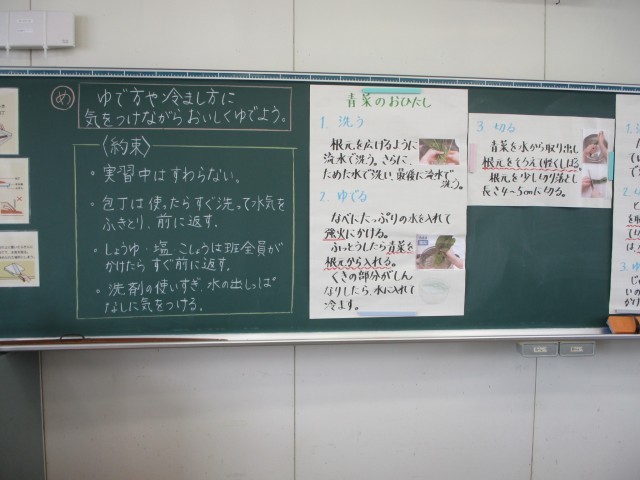 め
ゆで方や冷まし方に
気をつけながらおいしくゆでよう。
〈約束〉
・実習中はすわらない。
・包丁は使ったらすぐ洗って水気を
ふきとり、前に返す。
・しょうゆ・塩・こしょうは班全員が
かけたら すぐ前に返す。
・洗剤の使いすぎ、水の出しっぱ
なしに気をつける。
青菜のおひたし
1. 洗う
根元を広げるように
流水で洗う。さらに、
ためた水で洗い、最後に流水で
洗う。
2. ゆでる
なべにたっぷりの水を入れて
強火にかける。
ふっとうしたら青菜を
根元から入れる。
くきの部分がしん
なりしたら、水に入れて
冷ます。
3. 切る
青菜を水から取り出し
根元をそろえて軽くしぼる。
根元を少し切り落とし
長さ4~5cmに切る。